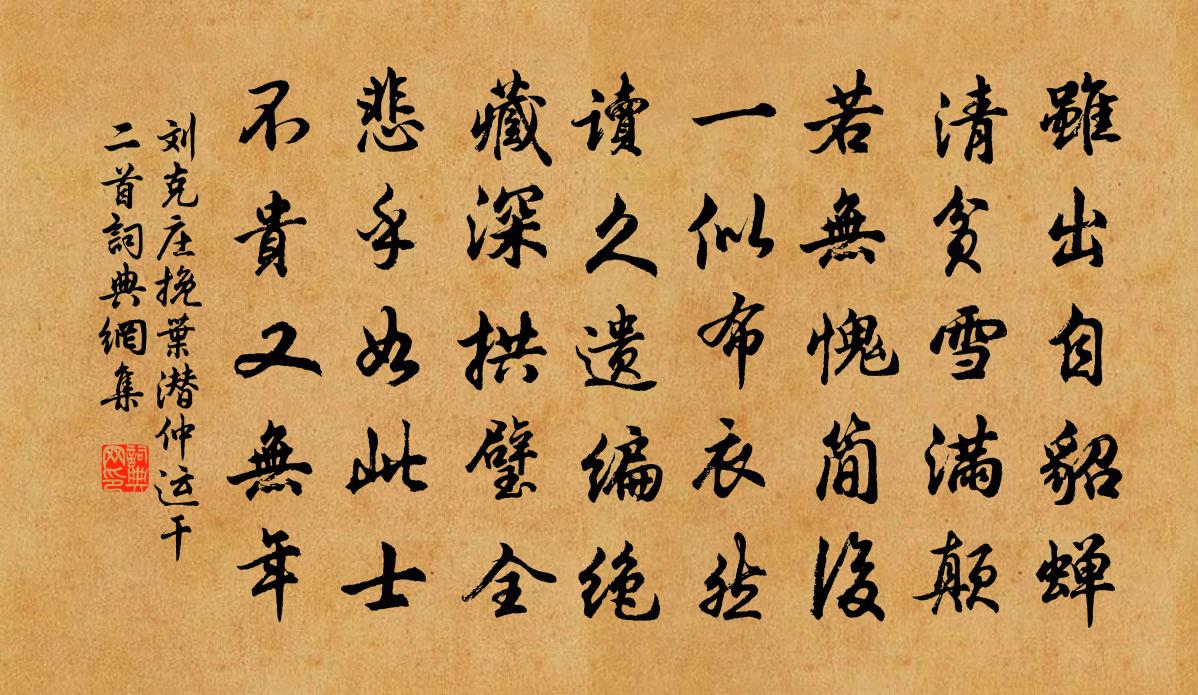 雖出自貂蝉
清貧雪满颠
若無愧简後
一似布衣然
讀久遗编绝
藏深拱璧全
悲乎如此士
不貴又無年
刘克庄挽葉潜仲运干
二首詞典網集
詞典网印